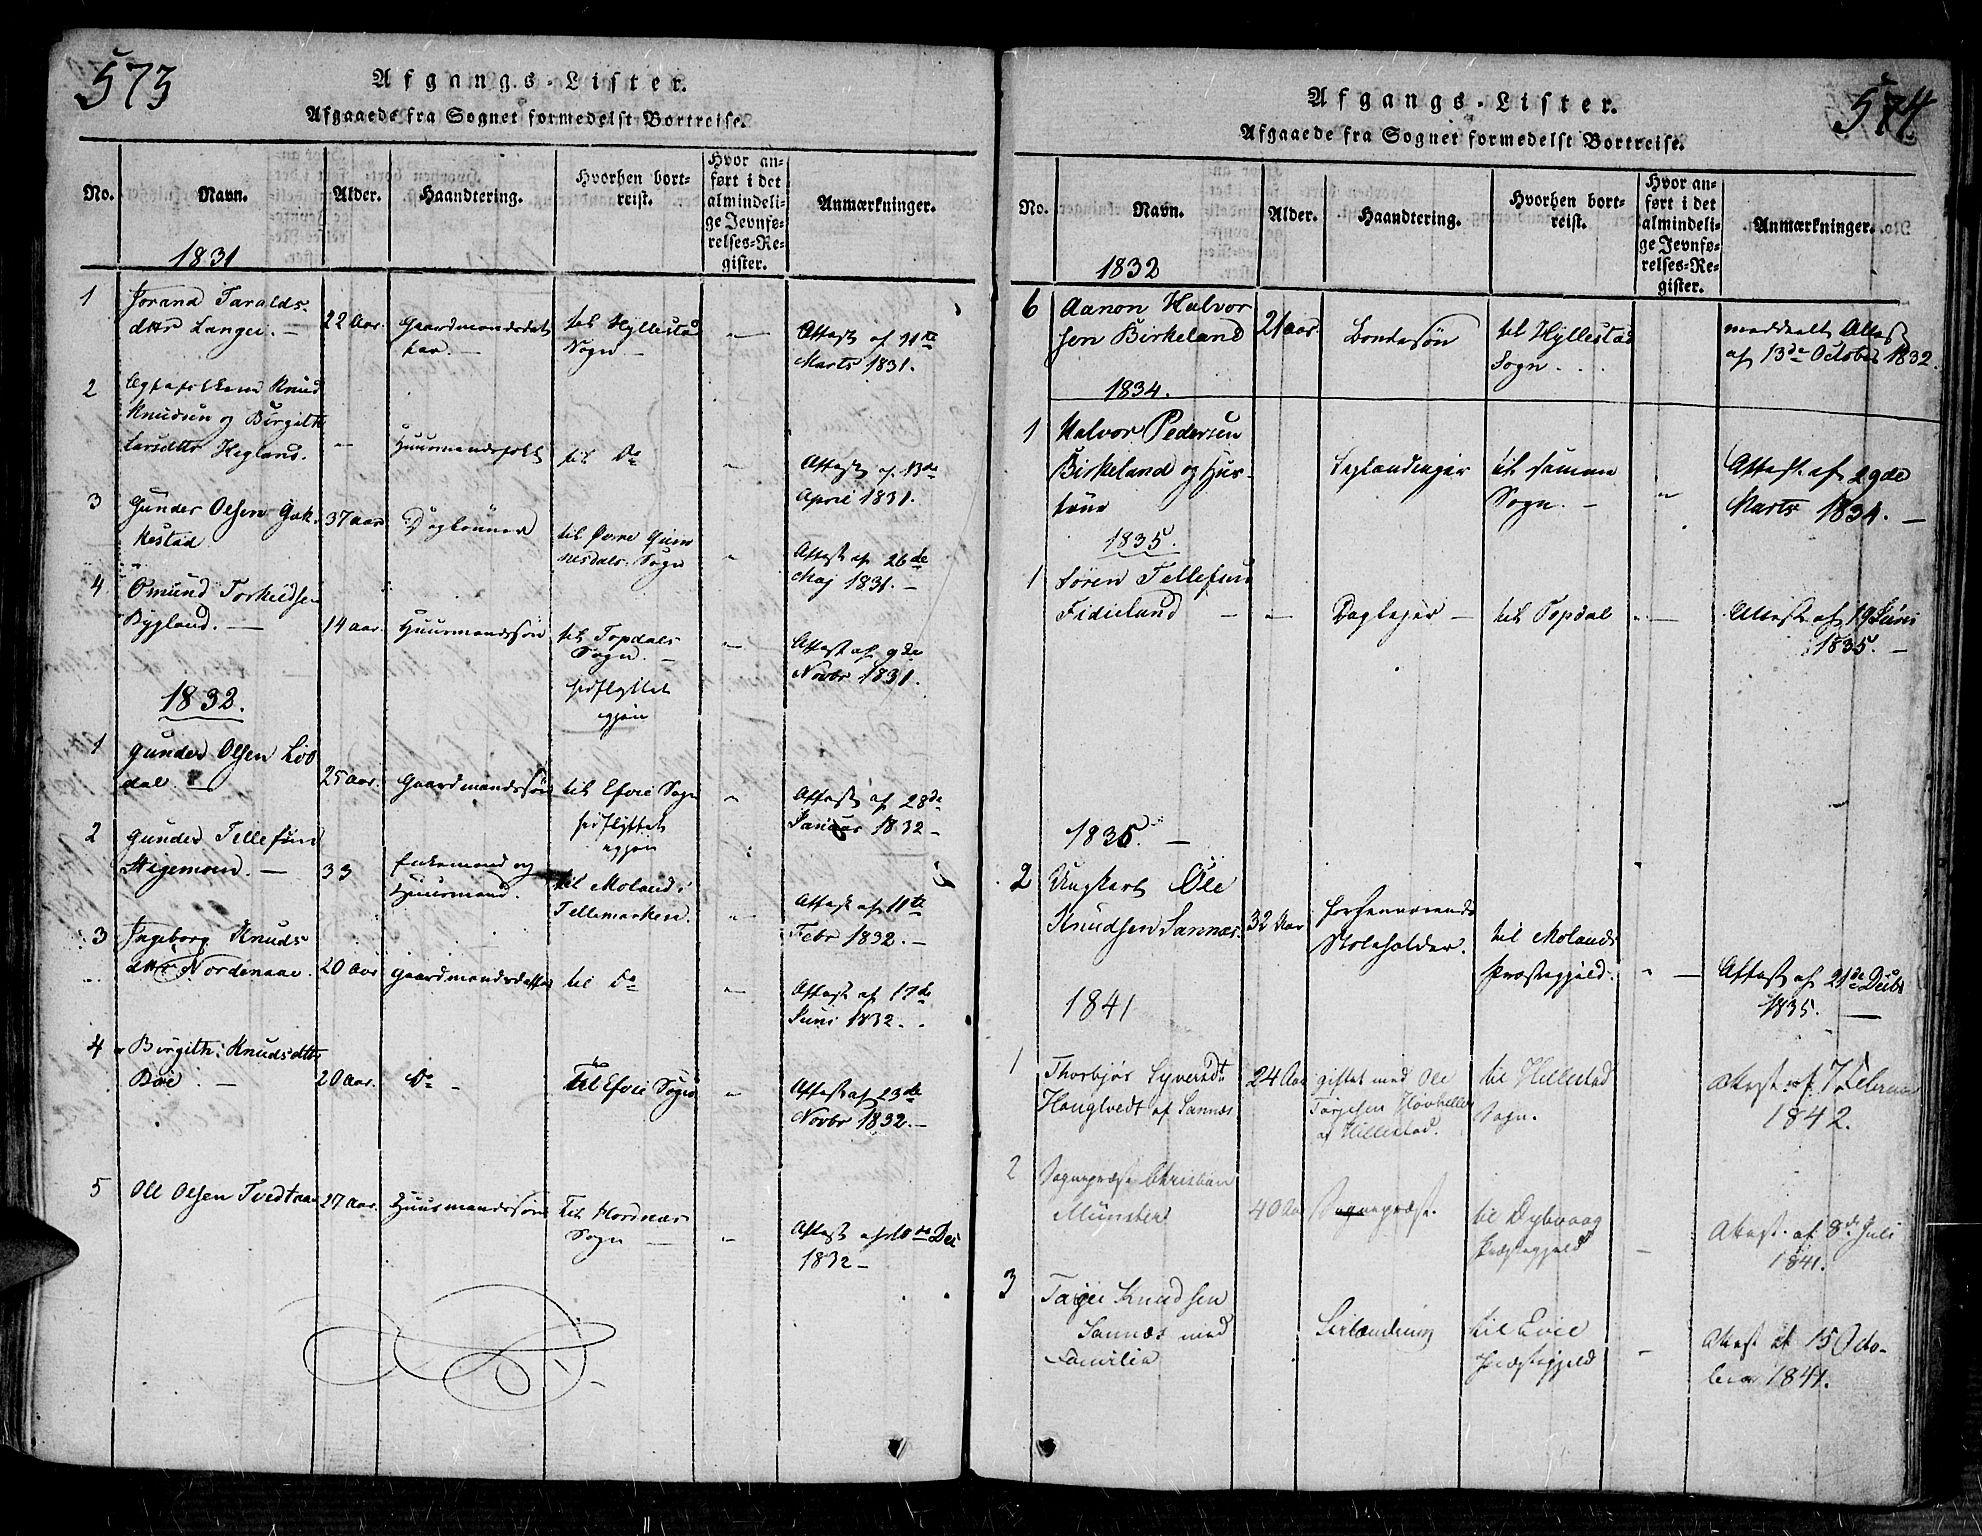 573
Afgangs-Lister.
Afgaaede fra Sognet formedelst Bortreise.
No.
Navn.
Alder.
Haandtering.
Hvorhen bort-
reist.
Hvor an-
ført i det
almindeli-
ge Jevnfø-
relses-Re-
gister.
Anmærkninger.
1831
1
Torand Taralds
dttr Langei. —
22 Aar.
Gaardmandsdat
ter. —
til Hyllestad
Sogn —
Attest af 11te
Marts 1831.
2
Egtefolkene Knud
Knudsen og Birgith
Larsdttr Hegland.
Huusmandsfolk
til Do
Attest af 13de
April 1831.
3
Gunder Olsen
37 aar
Dagleiner
til Øvre
Sogn
Attest af 26de
Maj 1831. —
4
Omund Torkildse
Bygland. —
14 aar.
Huusmandssøn
til Topdals
Sogn. —
Attest af 9de
Novbr 1831.
1832.
hidflyttet
igjen
1
Gunder Olsen Lio
dal. —
25 aar.
Gaardmandssøn
til Evie Sogn
Attest af 28de
Januar 1832 —
hidflyttet
igjen
2
Gunder Tellefsen
Hegemoen. —
33
Enkemand og
Huusmand.
til Moland i
Tellemarken.
Attest af 11te
Febr 1832. —
3
Ingeborg Knuds
dttr Nordenaae.
20 Aar
Gaardmandsdatter
til Do
Attest af 17de
Juni 1832.
4
Birgith Knudsdttr
Bøe. —
20 Aar.
Do —
til Evie Sogn
Attest af 23de
Novbr 1832. —
5
Ole Olsen Tvedtaae
27 Aar.
Huusmandssøn
til Hordnæs
Sogn —
Attest af 10de Dec
1832 —
574.
Afgangs-Lister.
Afgaaede fra Sognet formedelst Bortreise.
No.
Navn.
Alder.
Haandtering.
Hvorhen bort-
reist.
Hvor an-
ført i det
almindeli-
ge Jevnfø-
relses-Re-
gister.
Anmærkninger.
1832
6
Aanon Halvor
sen Birkeland
21 aar.
Bondesøn
til Hyllestad
Sogn
meddeelt Attest
af 13de October 1832.
1834.
1
Halvor Pedersen
Birkeland og Hus-
true
til samme
Sogn. —
Attest af 29de
Marts 1834. —
1835.
1
Søren Tellefsen
Fidieland
Daglejer —
til Topdal
Attest af 19 Juni
1835. —
1835. —
2
Ungkarl Ole
Knudsen Sannæs.
32 Aar
forhenværende
Skoleholder.
til Molands
Præstegjeld.
Attest af 21de Decbr
1835. —
1841
1
Thorbjør Syversdt
Honglvedt af Sannæs
24 Aar
giftet med Ole
Torgesen Hovhellen
af Hillestad.
til Hillestad
Sogn.
Attest af 7 Februar
1842.
2
Sognepræst Christian
Münster
40 Aar
Sognepræst.
til Dybvaag
Præstegjeld
Attest af 8de Juli
1841.
3
Tarjei Knudsen
Sannæs med
Familie
Selveiendeing
til Evie
Præstegjeld
Attest af 15 Octo-
ber 1841.